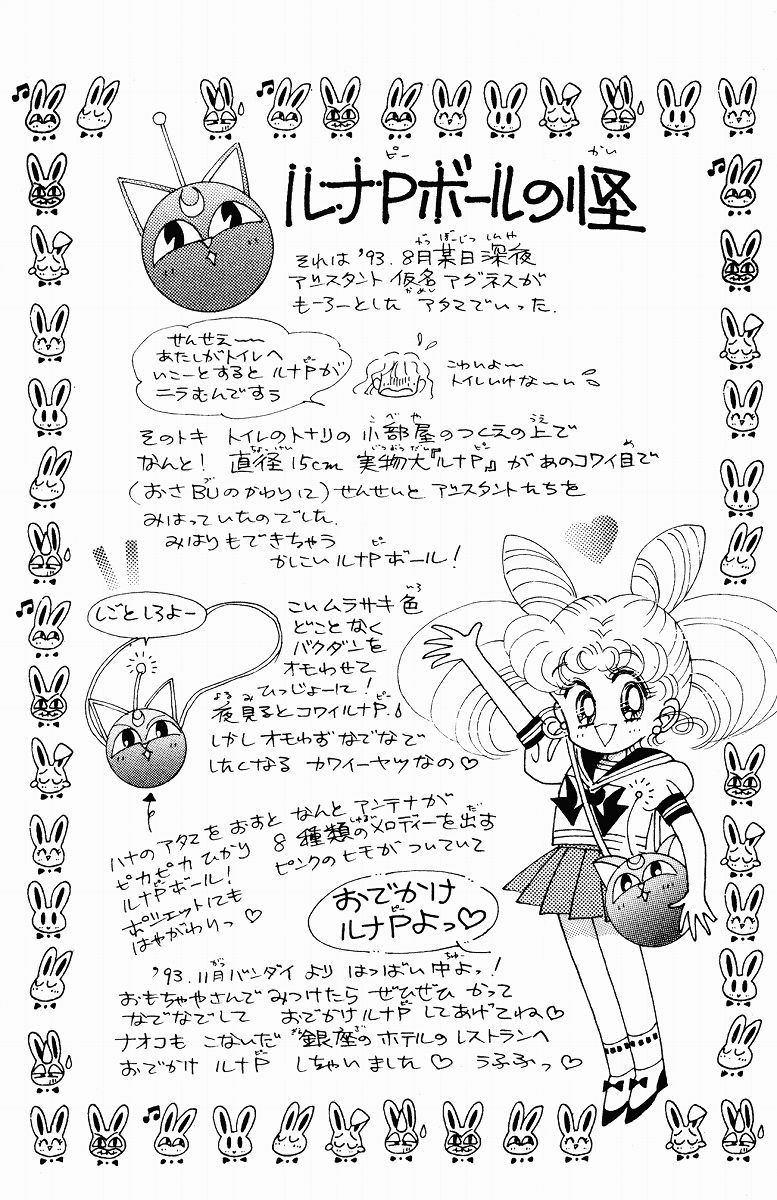 ルナPボールの怪
ピー
かい
それは'93.8月某日深夜
がつぼうじつしんや
アシスタント 仮名 アグネスが
かめい
もーろーとした アタマでいった.
せんせえ〜〜
あたしがトイレへ
いこーとすると ルナPが
ピー
ニラむんですぅ
こわいよ〜
トイレいけな〜い
そのトキ トイレのトナリの 小部屋のつくえの上で
こべや
うえ
なんと! 直径15cm 実物大『ルナP』が あのコワイ目で
ちょっけい
じつぶつだい
ピー
め
(おさBUのかわりに)せんせいと アシスタントたちを
ブ
みはっていたのでした.
みはりもできちゃう
かしこい ルナPボール!
ピー
しごとしろよー
こい ムラサキ色
いろ
どことなく
バクダンを
オモわせて
ひっじょーに!
夜見るとコワイルナP.
よるみ
ピー
しかし オモわずなでなで
したくなる カワイーヤツなの♡
ハナのアタマを おすと なんと アンテナが
ピカピカ ひかり 8種類のメロディーを出す
しゅるい
だ
ルナPボール! ピンクのヒモがついていて
ポシェットにも
はやがわりっ♡
おでかけ
ルナPよっ♡
ピー
'93.11月バンダイ より はつばい中よっ!
がつ
ちゅー
おもちゃやさんで みつけたら ぜひぜひ かって
なでなでして おでかけルナP してあげてね♡
ピー
ナオコも こないだ 銀座の ホテルの レストランへ
ぎんざ
おでかけ ルナP しちゃいました♡ うふふっ♡
ピー